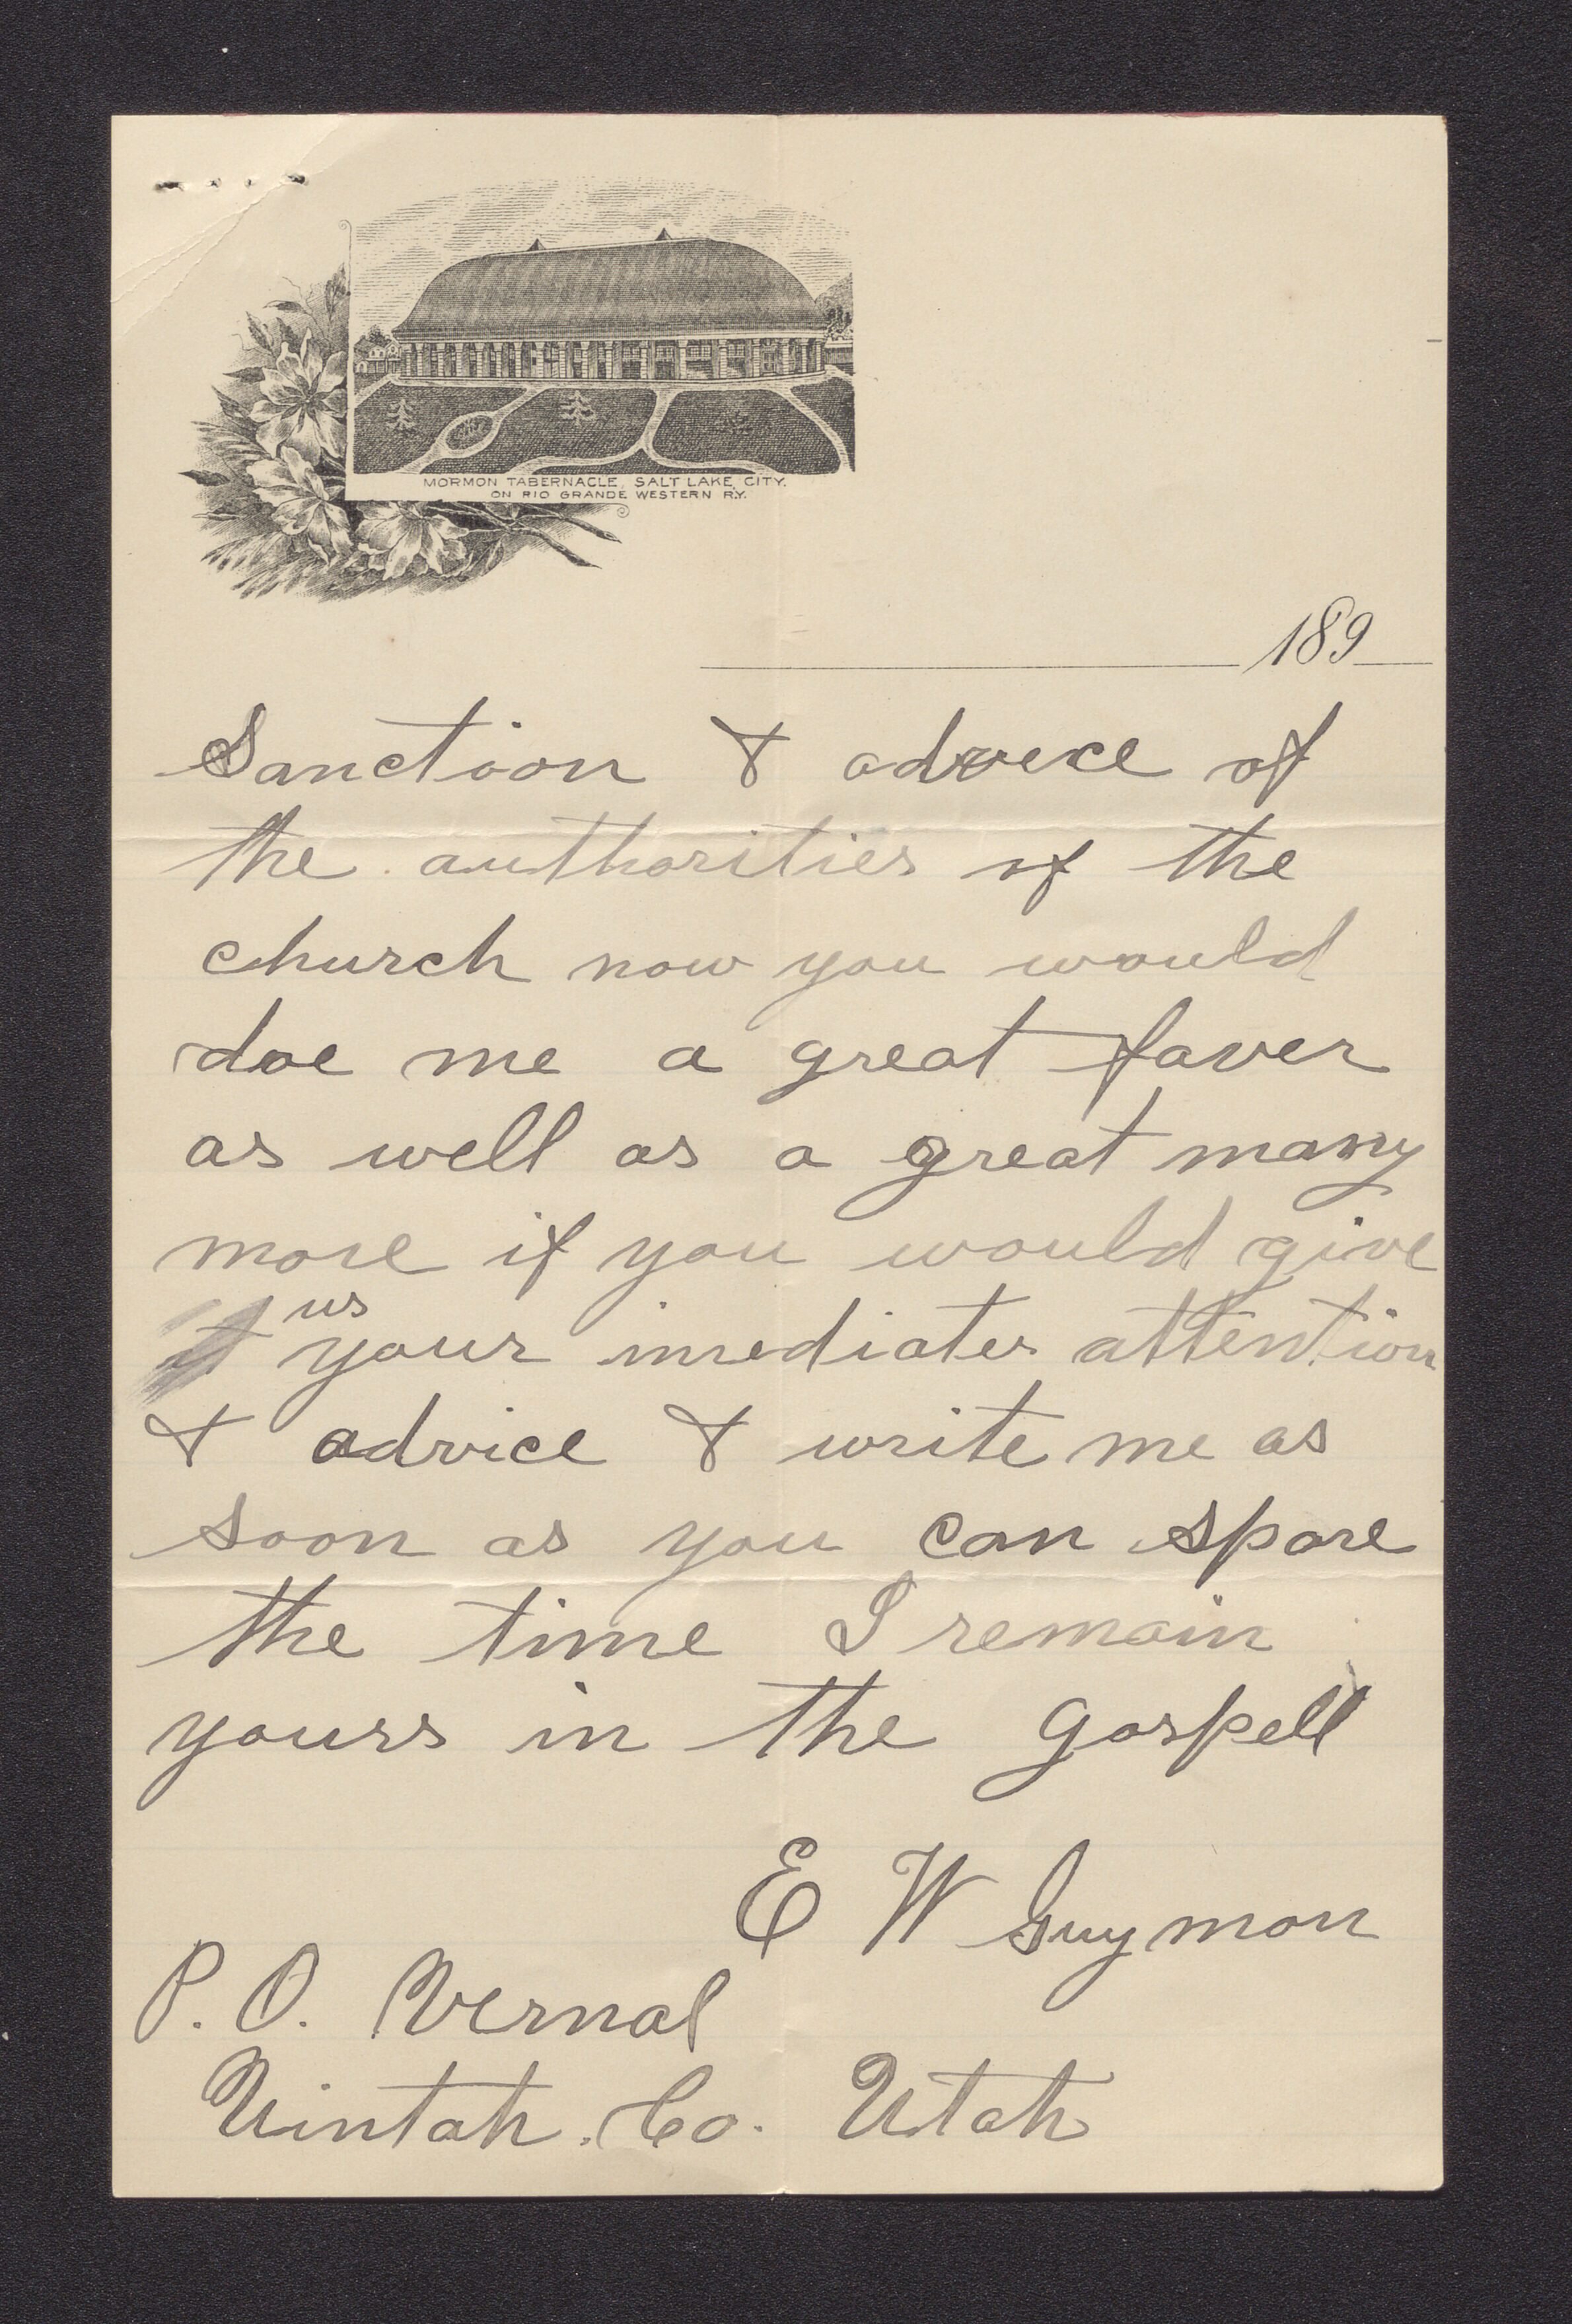 MORMON TABERNACLE, SALT LAKE CITY.
ON RIO GRANDE WESTERN RY.
189
Sanction & advice of
the authorities of the
church now you would
doe me a great faver
as well as a great many
more if you would give
us
it your imediates attention
& advice & write me as
soon as you can spare
the time I remain
yours in the gospell
E W Guymon
P. O. Vernal
Uintah. Co. Utah